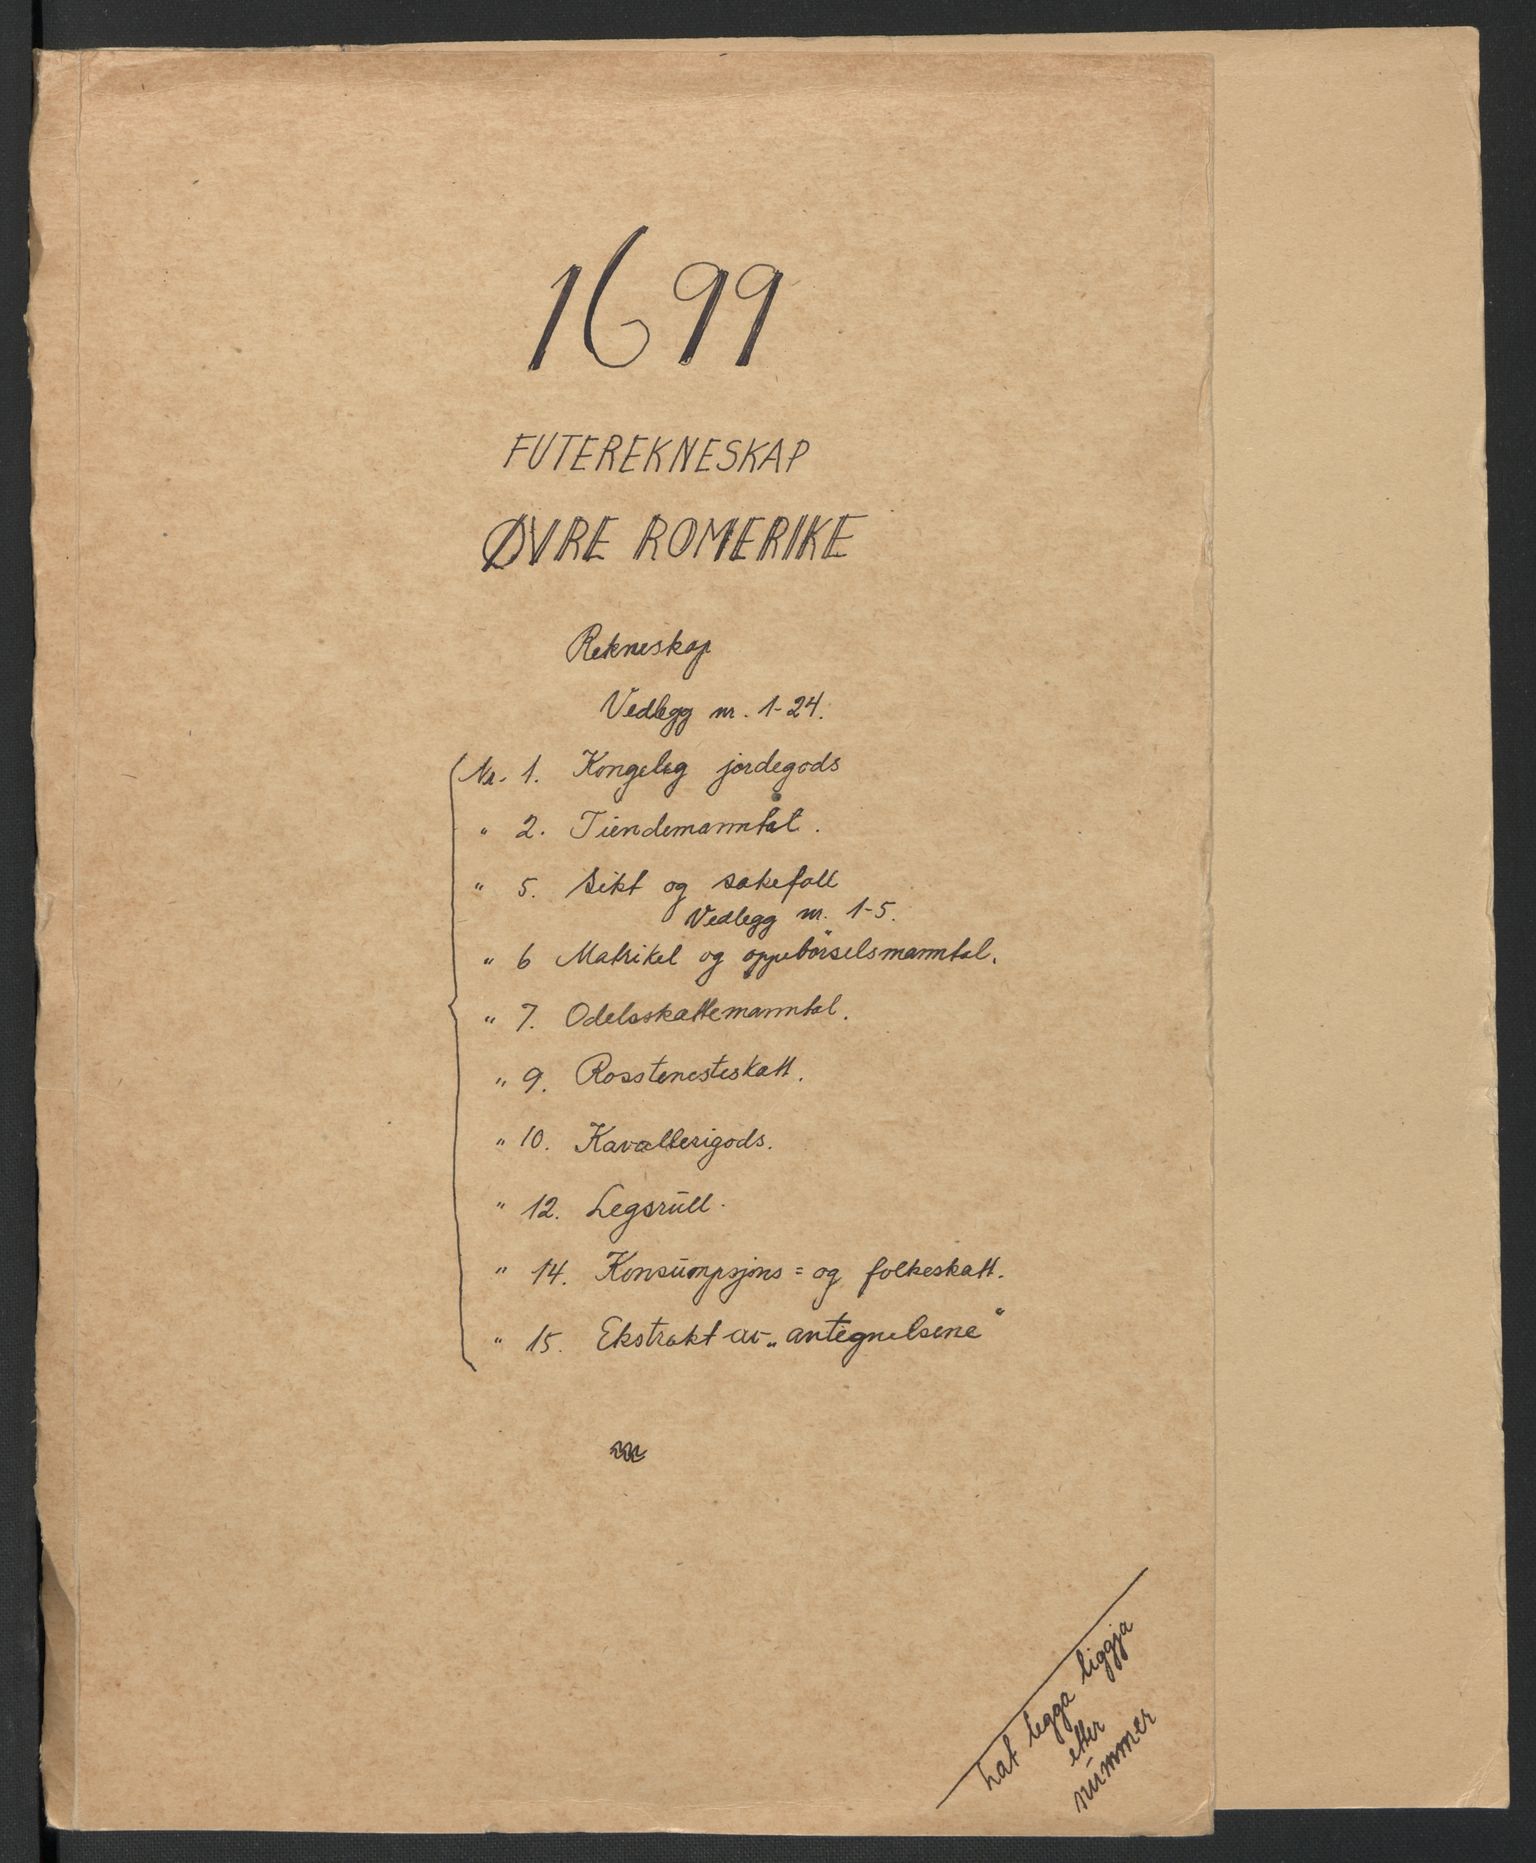 1699
FUTEREKNESKAP
ØVRE ROMERIKE
Rekneskap
Vedlegg nr. 1-24.
Nr. 1. Kongeleg jordegods
" 2. Tiendemanntal.
" 5. Sikt og sakefall
Vedlegg nr. 1-5.
" 6 Matrikel og oppebörselsmanntal.
" 7. Odelsskattemanntal.
" 9. Rosstenesteskatt.
" 10. Kavallerigods.
" 12. Legsrull.
" 14. Konsumpsjons= og folkeskatt.
" 15. Ekstrakt av „antegnelsene"
Lat legga liggja
etter
nummer